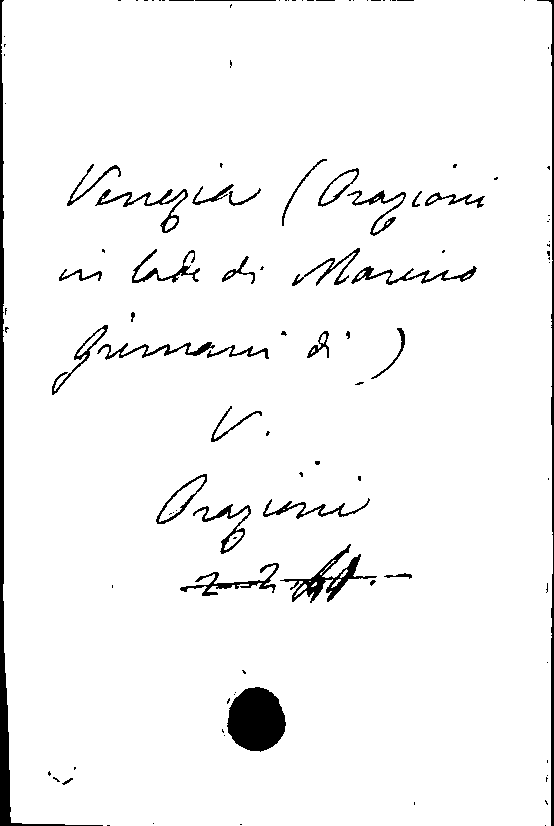 Venezia (Orazioni
in lode di Marino
Grimani di)
V.
Orazioni